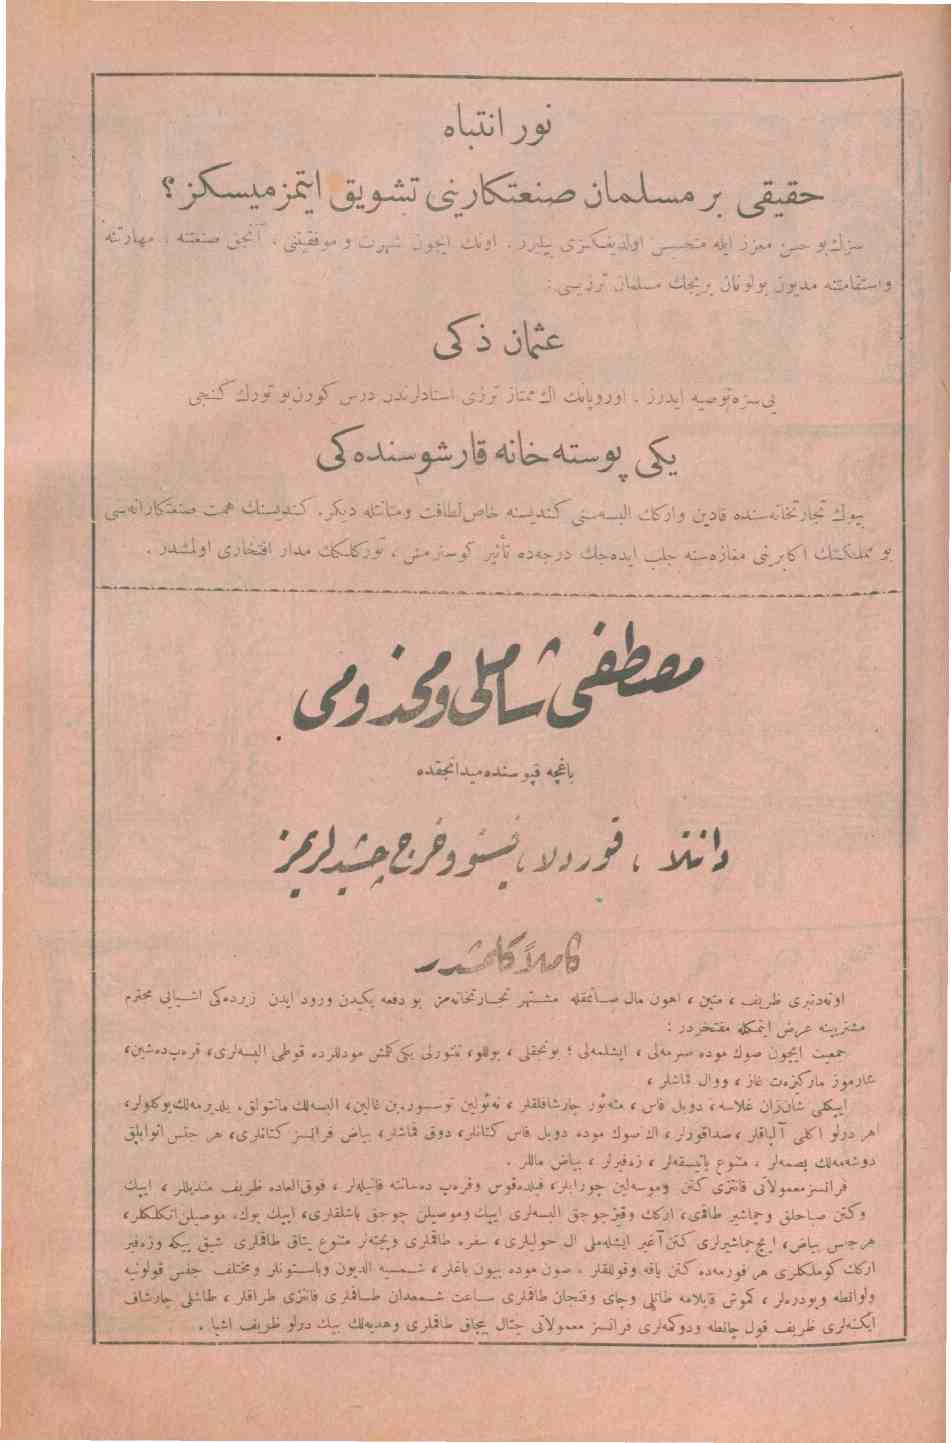 نور انتباه
حقیقی بر مسلمان صنعتكارینی تشویق ایتمزمیسكز؟
سزك بو حس معزز ایله متحسس اولدیغكزی بیلیرز . اونك ایچون شهرت و موفقیتنی ، آنجق صنعتنه ، مهارتنه
واستقامتنه مدیون بولونان بریجك مسلمان ترزیسی :
عثمان ذكی
یی سزه توصیه ایدرز . اوروپانك اك ممتاز ترزی استادلرندن درس كورن بو تورك كنجی
یكی پوسته خانه قارشوسنده كی
بیوك تجارتخانه سنده قادین واركك البسه سنی كندیسنه خاص لطافت ومتانتله دیكر. كندیسنك همت صنعتكارانه سی
بو مملكتك اكابرینی مغازه سنه جلب ایده جك درجه ده تأثیر كوسترمش ، توركلكك مدار افتخاری اولمشدر .
مصطفی شاملی ومخدومی
باغچه قپوسنده میدانجقده
دانتلا ، قوردلا ، فیستو وخرج چشیدلریمز
كاملاً كلمشدر
اوته دنبری ظریف ، متین ، اهون مال صاتمقله مشتهر تجارتخانه مز بو دفعه یكیدن ورود ایدن زیرده كی اشیایی محترم
مشتریسنه عرض ایتمكله مفتخردر :
جمعیت ایچون صوك موده صرمه لی ، ایشلمه لی ؛ بونجقلی ، بوللو، نتورلی یكی كلمش موده للرده قوطی البسه لری، قره پ ده شین،
شارموز ماركیزه ت غاز ، ووال قماشلر ،
ایپكلی شانژان غلاسه ، دوبل فاس ، مته ئور چارشافلقلر ، البسه لك مانتولق، یلدیرمه لك بوكلولر،
هر درلو اكلی آلپاقلر ، صداقورلر ، اك صوك موده دوبل فاس كتانلر، دوق قماشلر، بیاض فرانسز كتانلری، هر جنس اثوابلق
دوشه مه لك بصمه لر ، متنوع پاتیسقه لر ، زه فیرلر ، بیاض ماللر .
فرانسز معمولاتی فانتزی كتن وموسه لین چورابلر، فیلده قوس وقره پ ده سانته فانیله لر ، فوق العاده ظریف مندیللر ، ایپك
وكتن صباحلق وچماشیر طاقمی، اركك وقیز چوجق البسه لری ایپك وموصیلن چوجق باشلقلری، ایپك یوك، موصیلن اتكلكلر،
هر جنس بیاض، ایچ چماشیرلری كتن آغیر ایشله ملی ال حولیلری، سفره طاقملری وپچته لر متنوع یتاق طاقملری شیق پیكه وزه فیر
اركك كوملكلری هر فورمه ده كتن یاقه وقوللقلر . صون موده بیون باغلر ، شمسیه الدیون وباستونلر ومختلف جنس قولونیه
ولوانطه وپودره لر ، كموش قاپلامه طاتلی وچای وفنجان طاقملری ساعت شمعدان طاقملری فانتزی طراقلر ، طاشلی چارشاف
ایكنه لری ظریف قول چانطه ودوكمه لری فرانسز معمولاتی چتال بیچاق طاقملری وهدیه لك بیك درلو ظریف اشیا .